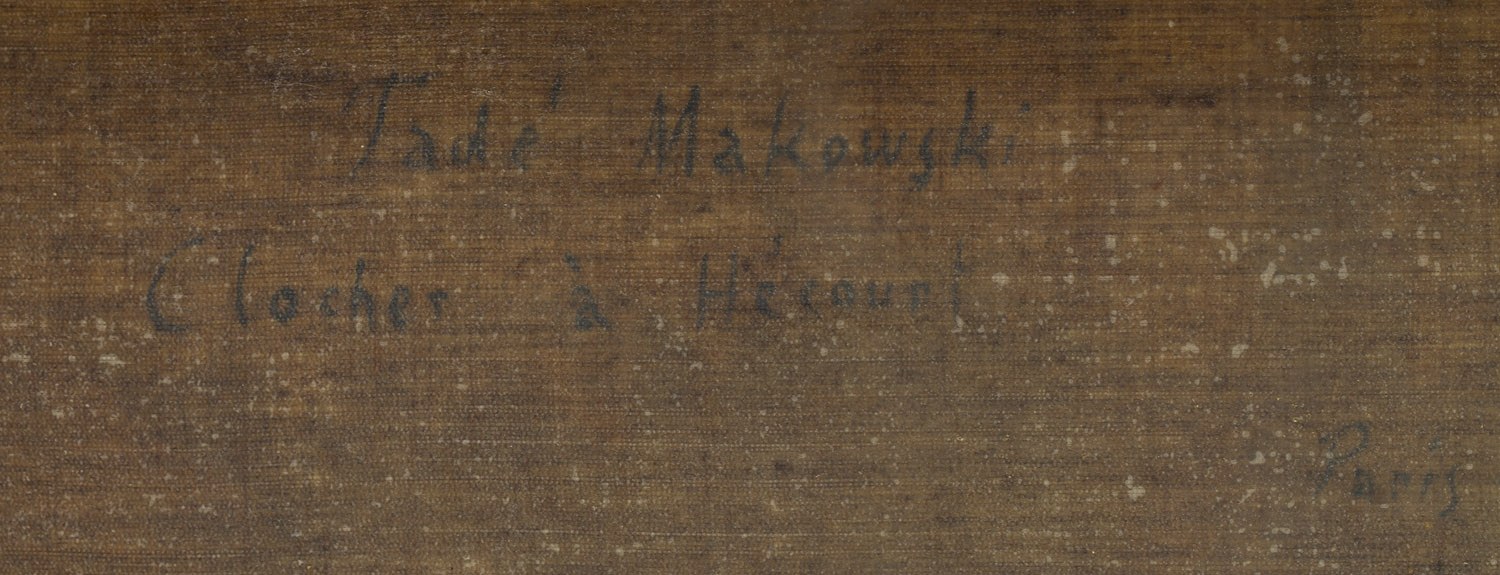 Tadé Makowski
Clocher à Hécourt
Paris